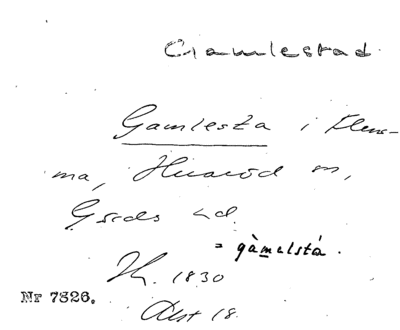 Gamlestad.
Gamlesta i Klens-
ma, Huaröd sn,
Gärds hd.
= gàmelstá.
Jk. 1830
Nr 7326.
Abt 18.